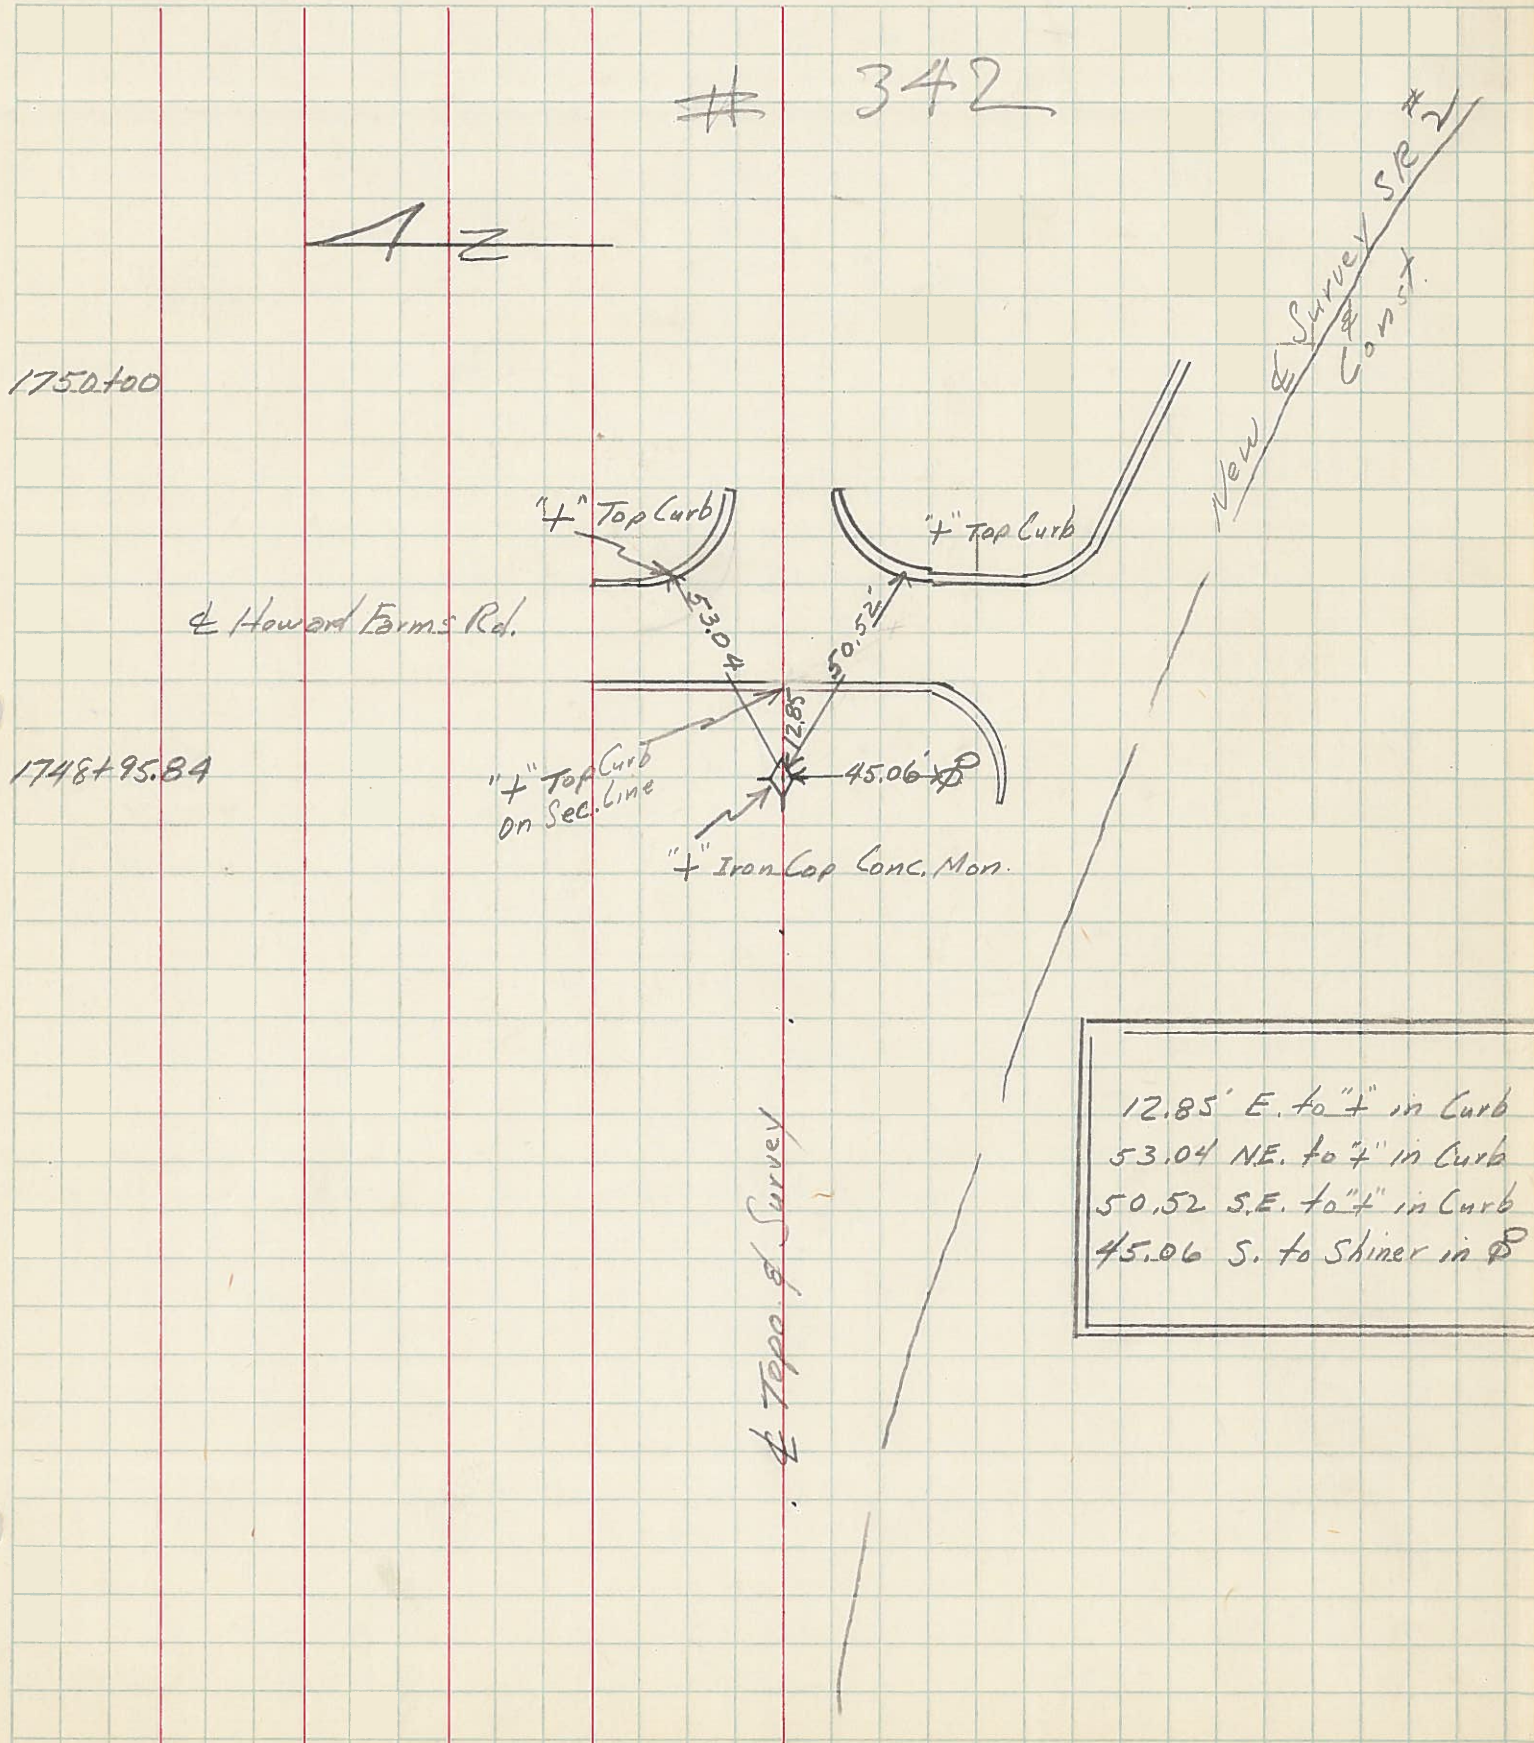 # 342
N
New ℄ Survey SR #2
& Const.
1750+00
"+" Top Curb
"+" Top Curb
℄ Howard Farms Rd.
53.04
50.52'
12.85
1748+95.84
"+" Top Curb
on Sec. Line
45.06'
"+" Iron Cap Conc. Mon.
℄ Topo. of Survey
12.85' E. to "+" in Curb
53.04 NE. to "+" in Curb
50.52 S.E. to "+" in Curb
45.06 S. to Shiner in